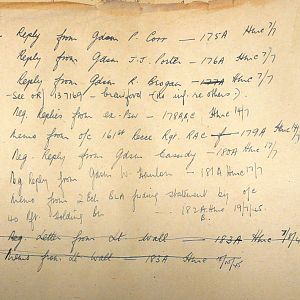 - Reply from Gdsm P. Corr — 175A Hmc 7/7
Reply from Gdsm J.J. Porter — 176A Hmc 7/7
Reply from Gdsm R. Brogan — 177A Hmc 7/7
- See OR 137169 - Crawford (no inf. re others).
Neg. Replies from ex-PsW — 178A&C Hmc 14/7
Memo from O/C 161st Recce Regt. RAC — 179A Hmc 14/7
Neg. Reply from Gdsm Cassidy — 180A Hmc 17/7
Neg Reply from Gdsm W. Hanlon — 181A Hmc 17/7
Memo from 2 Ech BLA statement by O/C
40 Rft. Holding Bn — 182A Hmc 19/7/45
B.
Neg. Letter from Lt Wall — 183A Hmc
Memo from Lt Wall — 183A Hmc